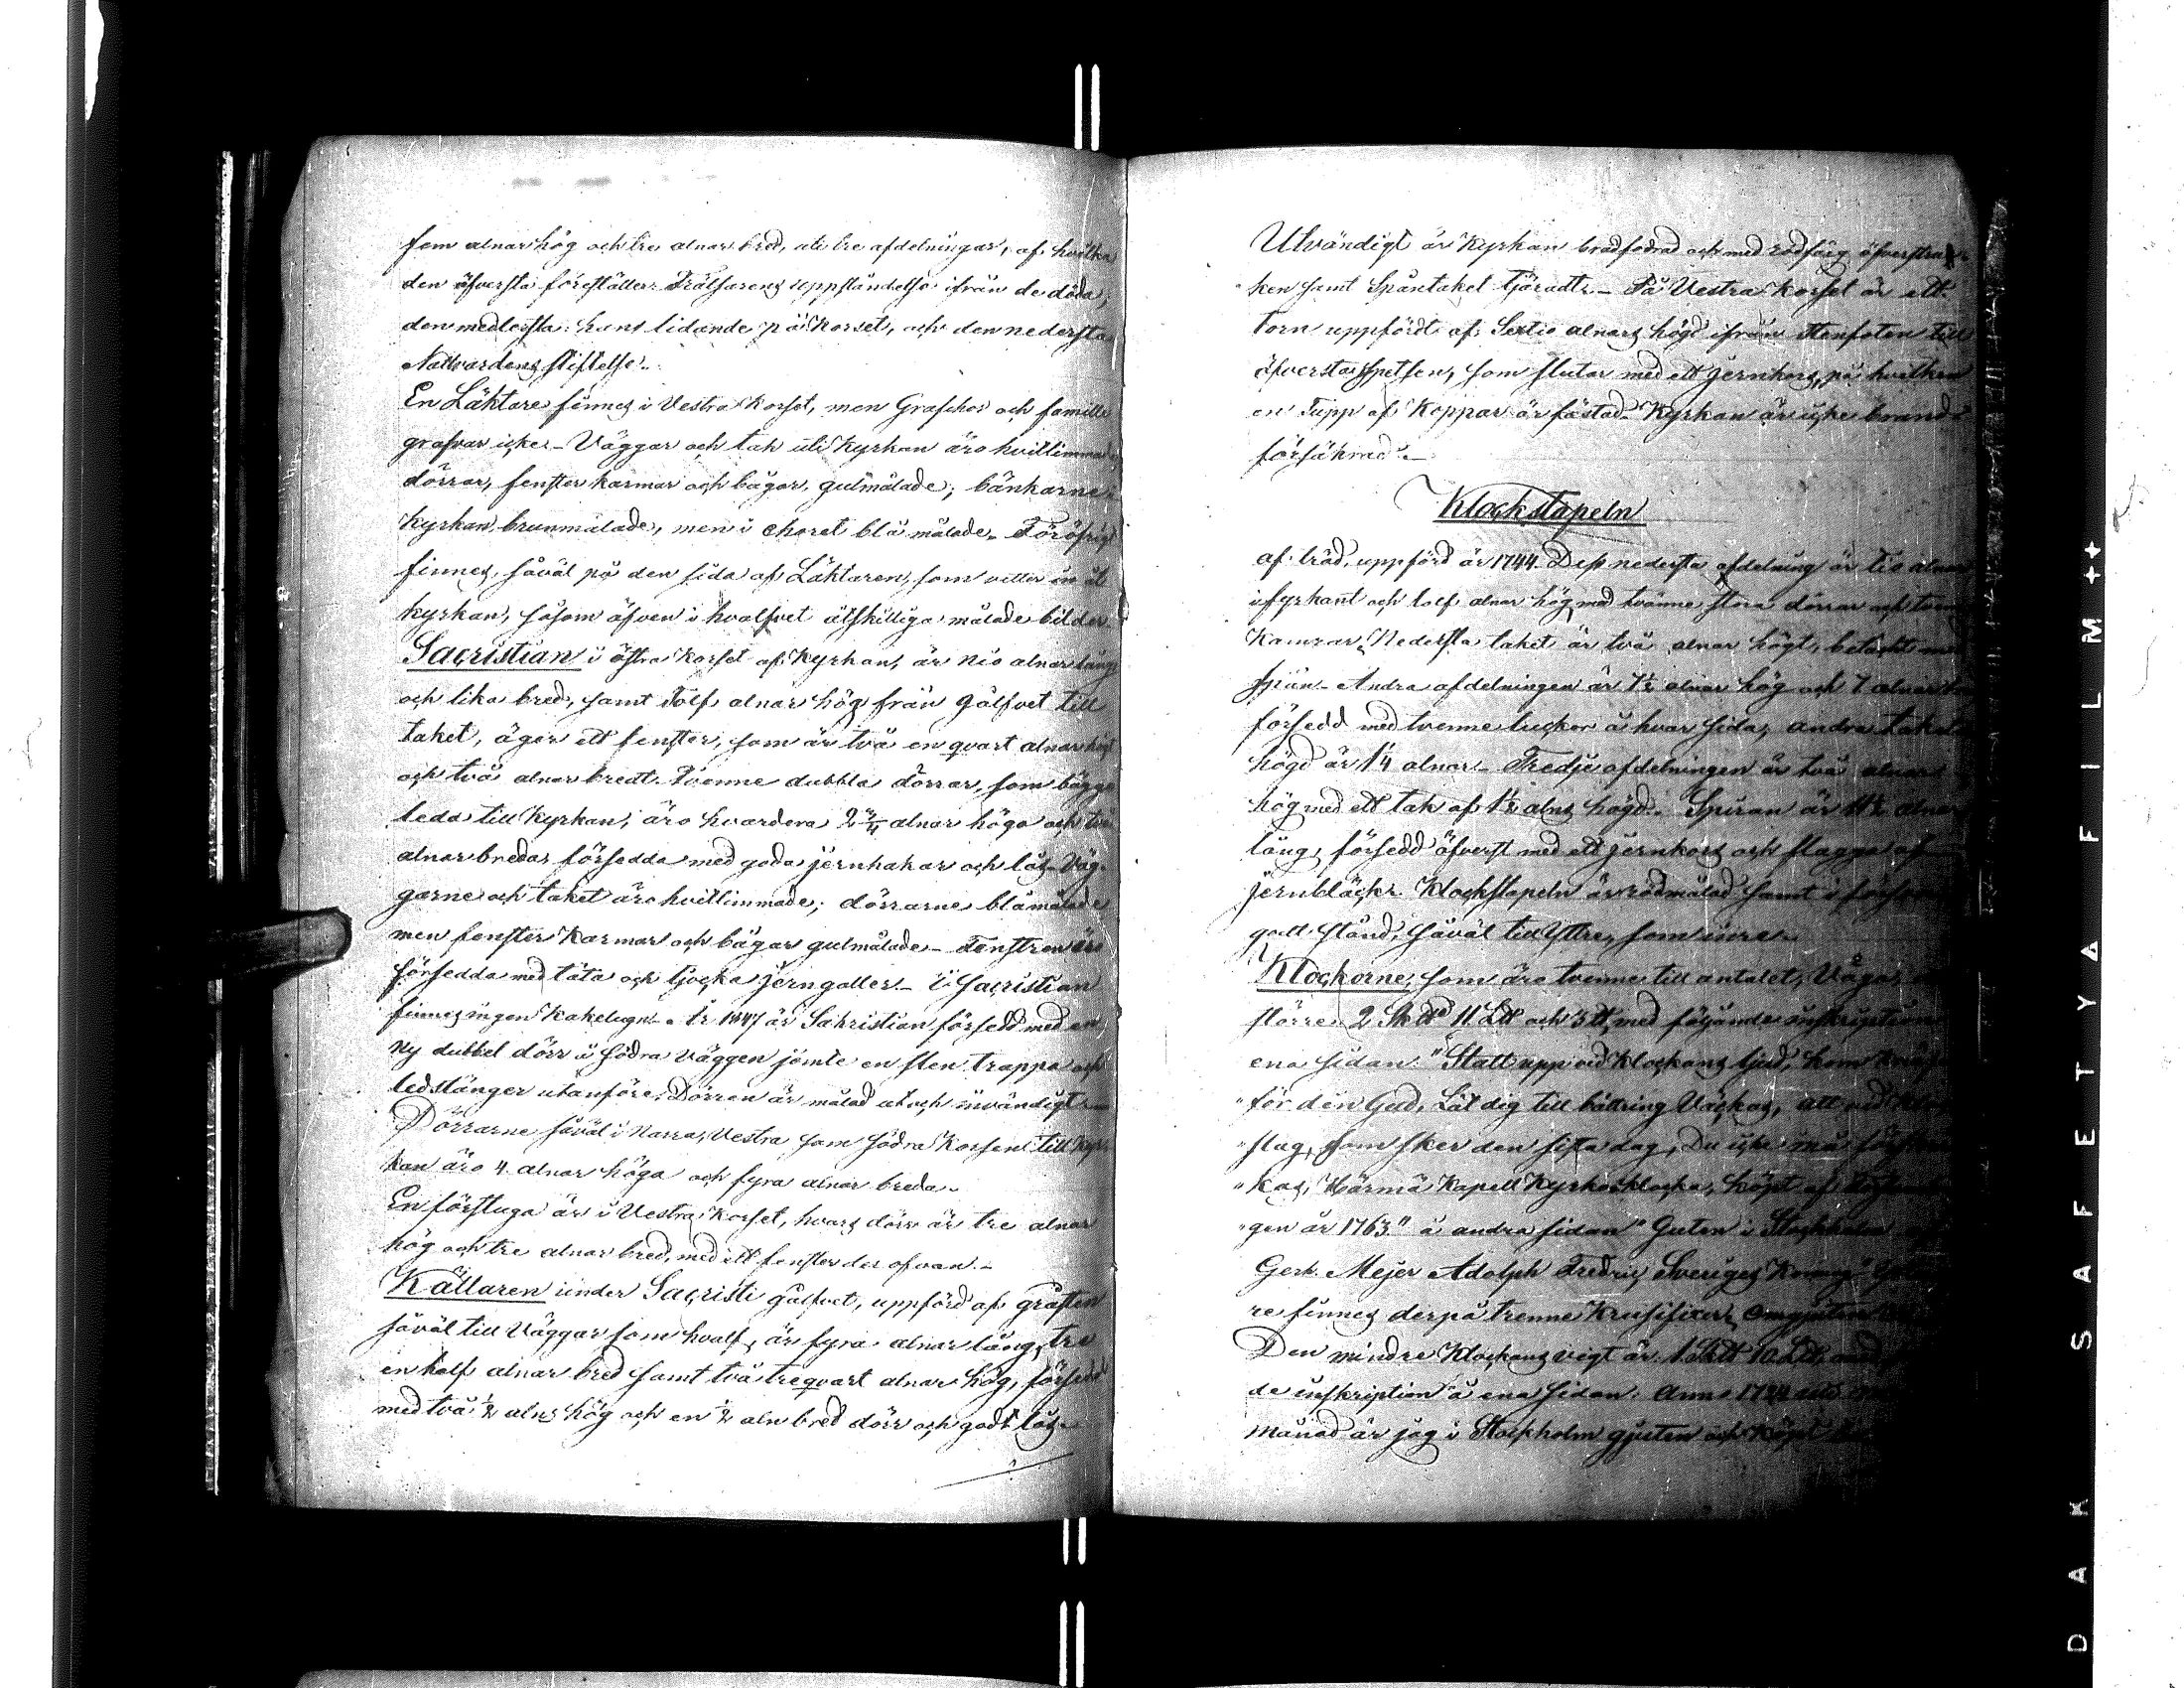 fem alnar hög och tre alnar bred, uti tre afdelningar, af hvilka
den öfversta föreställer Frälsarens uppståndelse ifrån de döda;
den medlersta: hans lidande på Korset, och den nedersta
Nattvardens stiftelse.
En Läktare finnes i Vestra Korset, men Grafchor och famille
grafvar icke. Väggar och tak uti Kyrkan äro hvitlimmade
dörrar, fenster karmar och bågar, gulmålade; bänkarne
Kyrkan brunmålade, men i choret blå målade. Föröfrigt
finnes, såväl på den sida af Läktaren, som vetter in åt
kyrkan, såsom äfven i hvalfvet åtskilliga målade bilder
Sacristian i östra Korset af Kyrkan, är nio alnar lång
och lika bred, samt Tolf alnar hög från gålfvet till
taket, äger ett fenster, som är två en qvart alnar högt
och två alnar bredt. Tvenne dubbla dörrar, som bägge
leda till Kyrkan, äro hvardera 2 3/4 alnar höga och två
alnar breda, försedda med goda jernhakar och lås. Väg-
garne och taket äro hvitlimmade; dörrarne blåmålade
men fenster Karmar och bågar gulmålade. Fenstren äro
försedda med täta och tjocka jerngaller. I Sacristian
finnes ingen Kakelugn. År 1847 är Sakristian försedd med en
ny dubbel dörr å södra väggen jämte en sten trappa och
ledstänger utanföre. Dörren är målad ut och invändigt
Dörrarne såväl i Narra, Vestra som södra Korsen till Kyr-
kan äro 4 alnar höga och fyra alnar breda.
En förstuga är i Vestra Korset, hvars dörr är tre alnar
hög och tre alnar bred, med ett fenster der ofvan.
Källaren under Sacristi gålfvet, uppförd af gråsten
såväl till Väggar som hvalf, är fyra alnar lång, tre
en half alnar bred samt två treqvart alnar hög, försedd
med två 1/2 alns hög och en 1/2 aln bred dörr och godt lås.
Utvändigt är Kyrkan brädfodrad och med rödfärg öfverstru-
ken samt Spåntaket tjäradt. På Vestra Korset är ett
torn uppfördt af Sextio alnars högd ifrån stenfoten till
öfversta spetsen, som slutar med ett jernkors, på hvilken
en Tupp af Koppar är fästad. Kyrkan är icke brand-
försäkrad.
Klockstapeln
af träd, uppförd år 1744. Dess nedersta afdelning är tio alnar
i fyrkant och tolf alnar hög med tvänne stora dörrar och
Kamrar. Nedersta taket är två alnar högt, betäckt med
spån. Andra afdelningen är 7½ alnar hög och 7 alnar
försedd med tvenne luckor å hvar sida, andra takets
högd är 1¼ alnar. Tredje afdelningen är två alnar
hög med ett tak af 1½ alns högd. Spiran är 11½ alnar
lång, försedd öfverst med ett jernkors och flagga af
jernbläck. Klockstapeln är rödmålad samt i
godt stånd, såväl till yttre, som inre.
Klockorne, som äro tvenne till antalet, Väga,
större 2 Sk℔ 11 L℔ och 3 ℔ med följande inskription
ena sidan: "Statt upp vid Klockans ljud, kom
"för din Gud, Låt dig till bättring Väckas, att vid
"slag, som sker den sista dag, Du icke må
"kas, Härmä Kapell Kyrkoklocka, köpt af
"gen år 1763." å andra sidan "Guten i Stockholm
Gerh. Mejer Adolph Fredric Sveriges Konung"
re finnes derpå trenne Krusifixer, omgjuten
Den mindre Klockans vigt är 1 Sk℔ 10 L℔,
de inskription å ena sidan: Anno
månad är jag i Stockholm gjuten och Köpt
DAK SAFETY A FILM ++